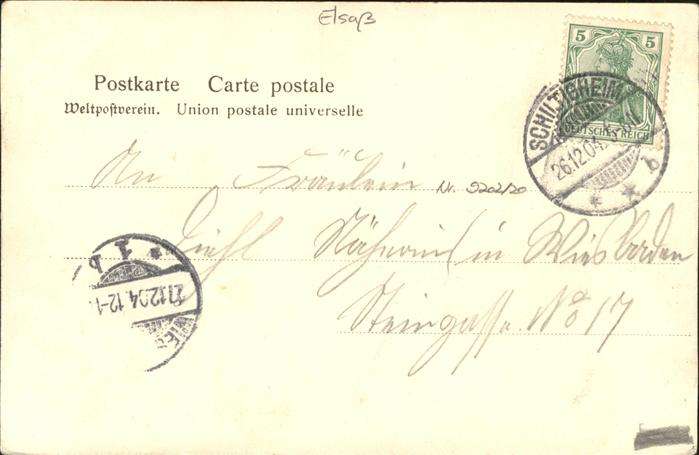 Elsaß
5 5
DEUTSCHES REICH
SCHILTIGHEIM
26.12.04
Postkarte Carte postale
Weltpostverein. Union postale universelle
An Fräulein Nr. 5202/20
Diehl Näherin in Wiesbaden
Steingasse No 17
1 b
27.12.04. 12-1
WIES